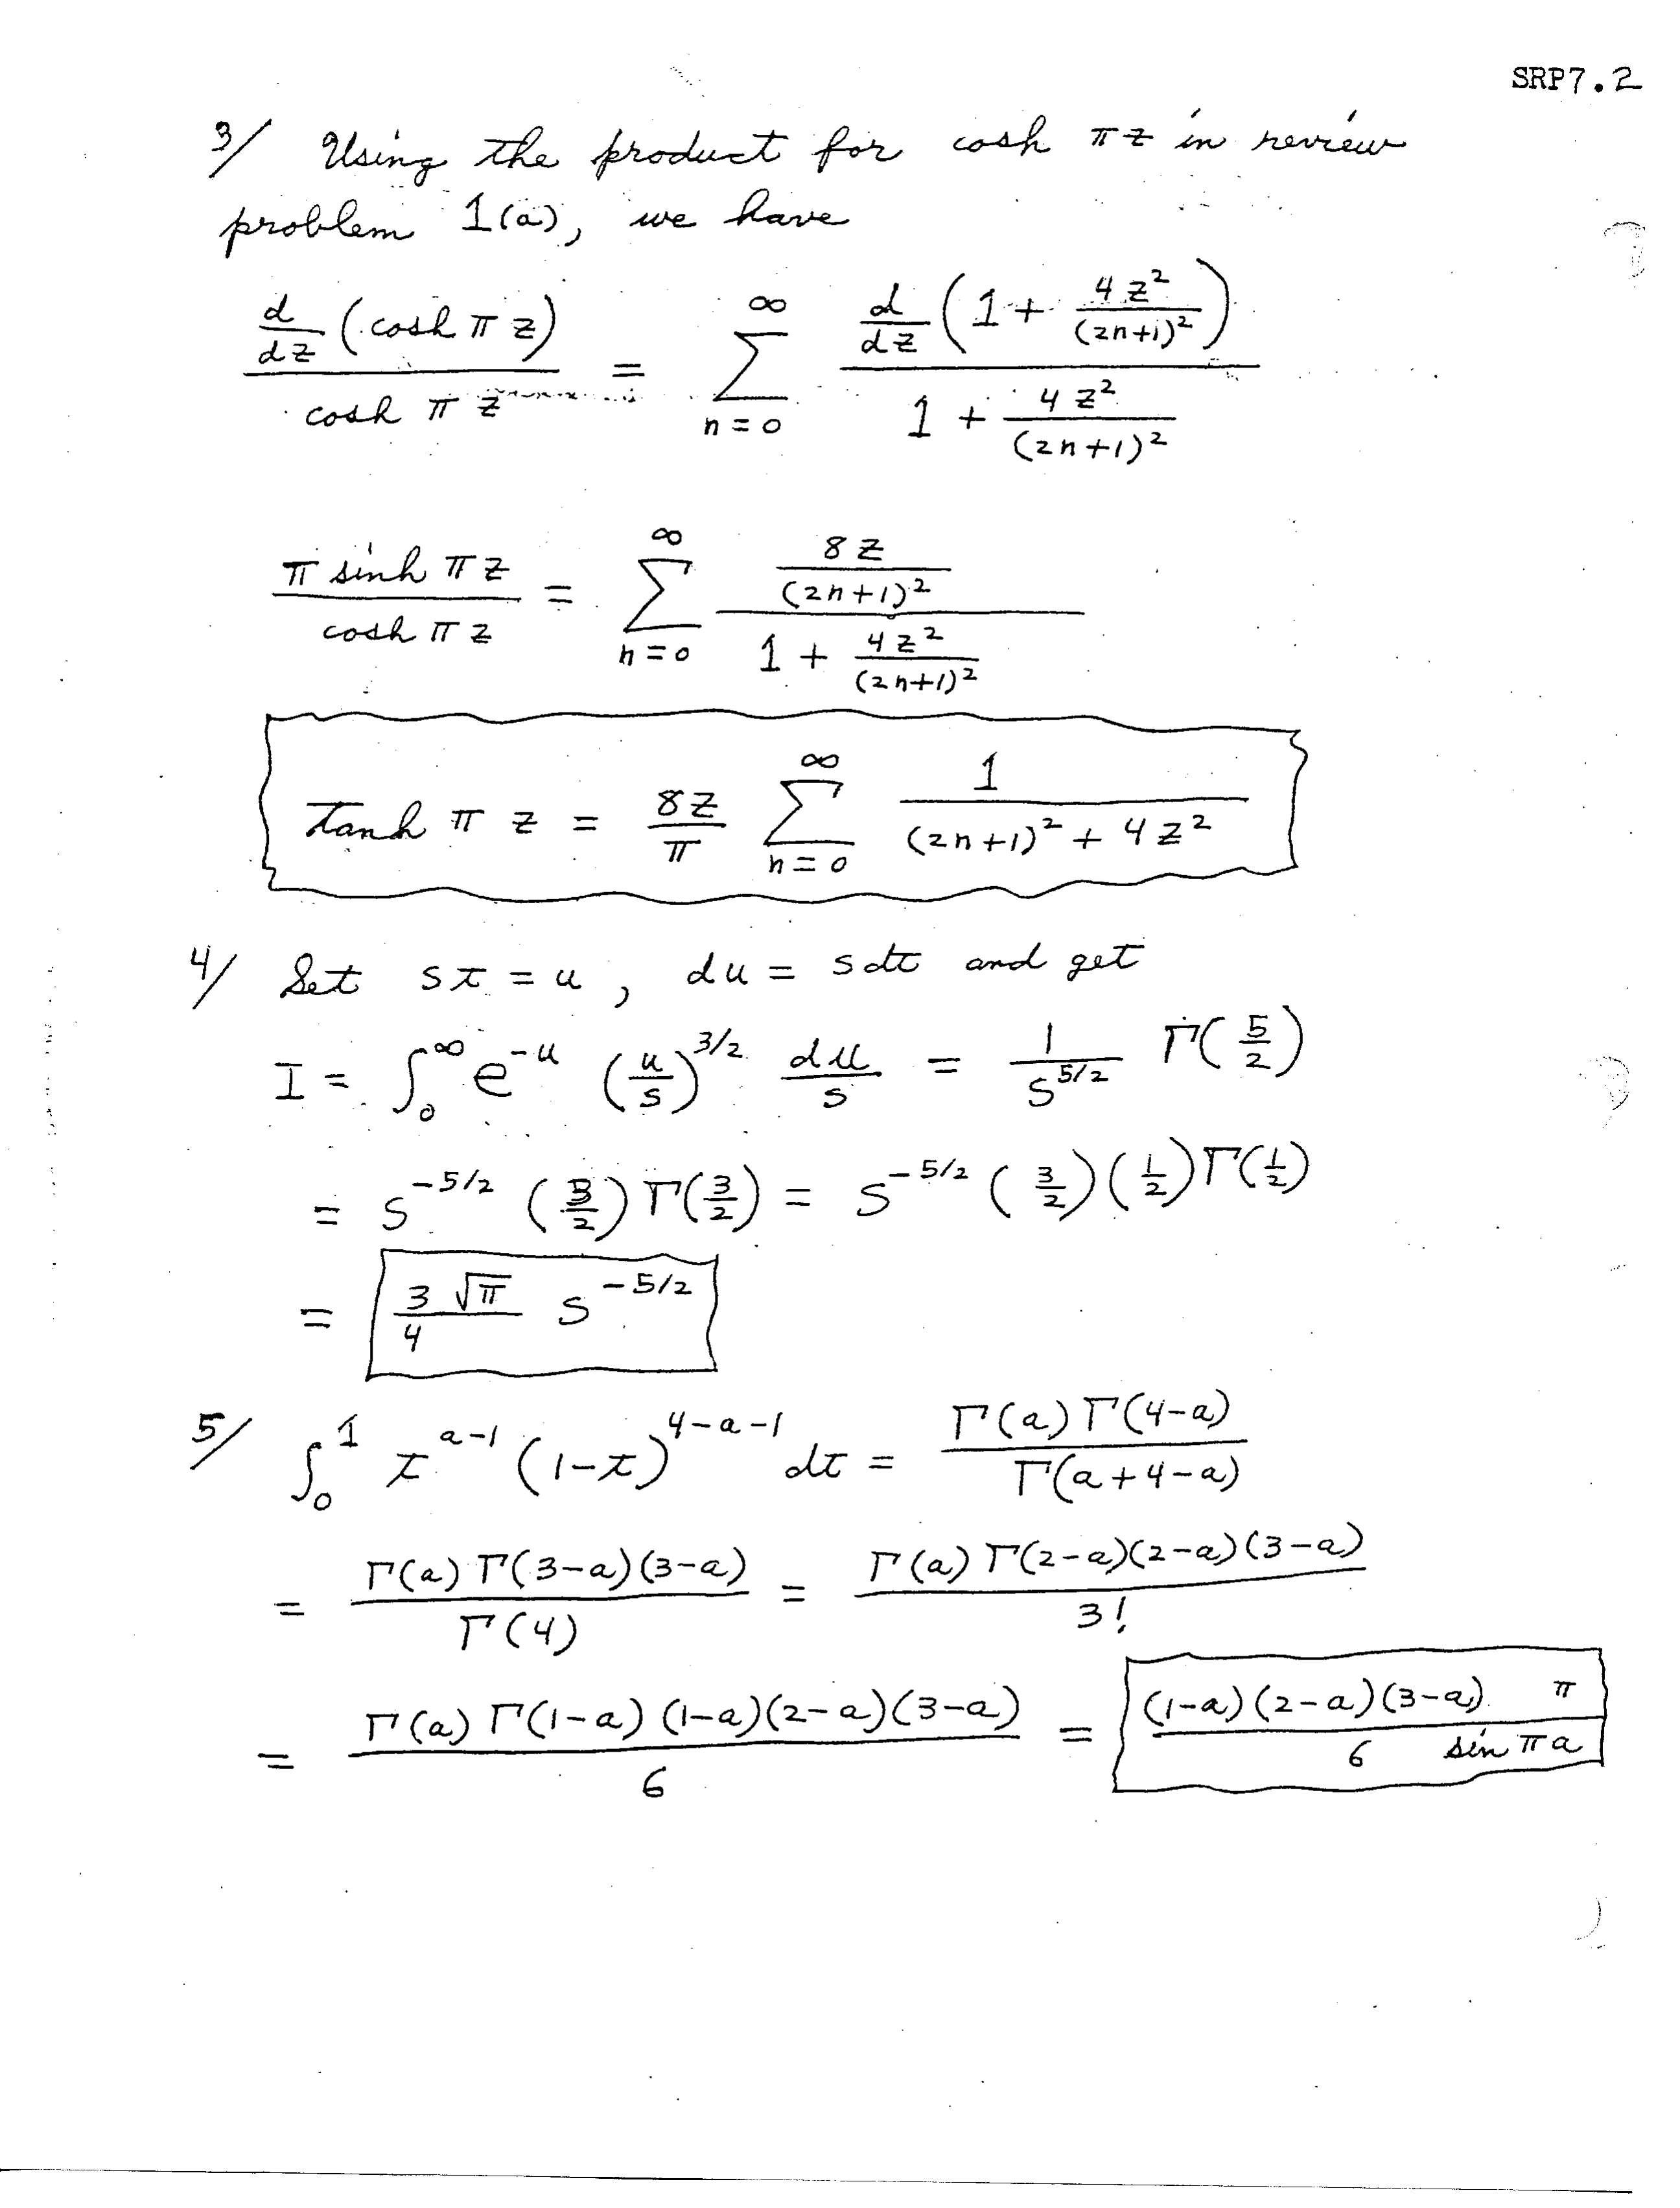 SRP7.2
3/ Using the product for cosh πz in review
problem 1(a), we have
\frac{\frac{d}{dz}(cosh πz)}{cosh πz} = \sum_{n=0}^{∞} \frac{\frac{d}{dz}(1 + \frac{4z^2}{(2n+1)^2})}{1 + \frac{4z^2}{(2n+1)^2}}
\frac{π sinh πz}{cosh πz} = \sum_{n=0}^{∞} \frac{\frac{8z}{(2n+1)^2}}{1 + \frac{4z^2}{(2n+1)^2}}
tanh πz = \frac{8z}{π} \sum_{n=0}^{∞} \frac{1}{(2n+1)^2 + 4z^2}
4/ Set st = u, du = sdt and get
I = \int_0^∞ e^{-u} (\frac{u}{s})^{3/2} \frac{du}{s} = \frac{1}{s^{5/2}} Γ(\frac{5}{2})
= s^{-5/2} (\frac{3}{2}) Γ(\frac{3}{2}) = s^{-5/2} (\frac{3}{2})(\frac{1}{2}) Γ(\frac{1}{2})
= \frac{3\sqrt{π}}{4} s^{-5/2}
5/ \int_0^1 t^{a-1} (1-t)^{4-a-1} dt = \frac{Γ(a) Γ(4-a)}{Γ(a+4-a)}
= \frac{Γ(a) Γ(3-a)(3-a)}{Γ(4)} = \frac{Γ(a) Γ(2-a)(2-a)(3-a)}{3!}
= \frac{Γ(a) Γ(1-a)(1-a)(2-a)(3-a)}{6} = \frac{(1-a)(2-a)(3-a) π}{6 sin πa}